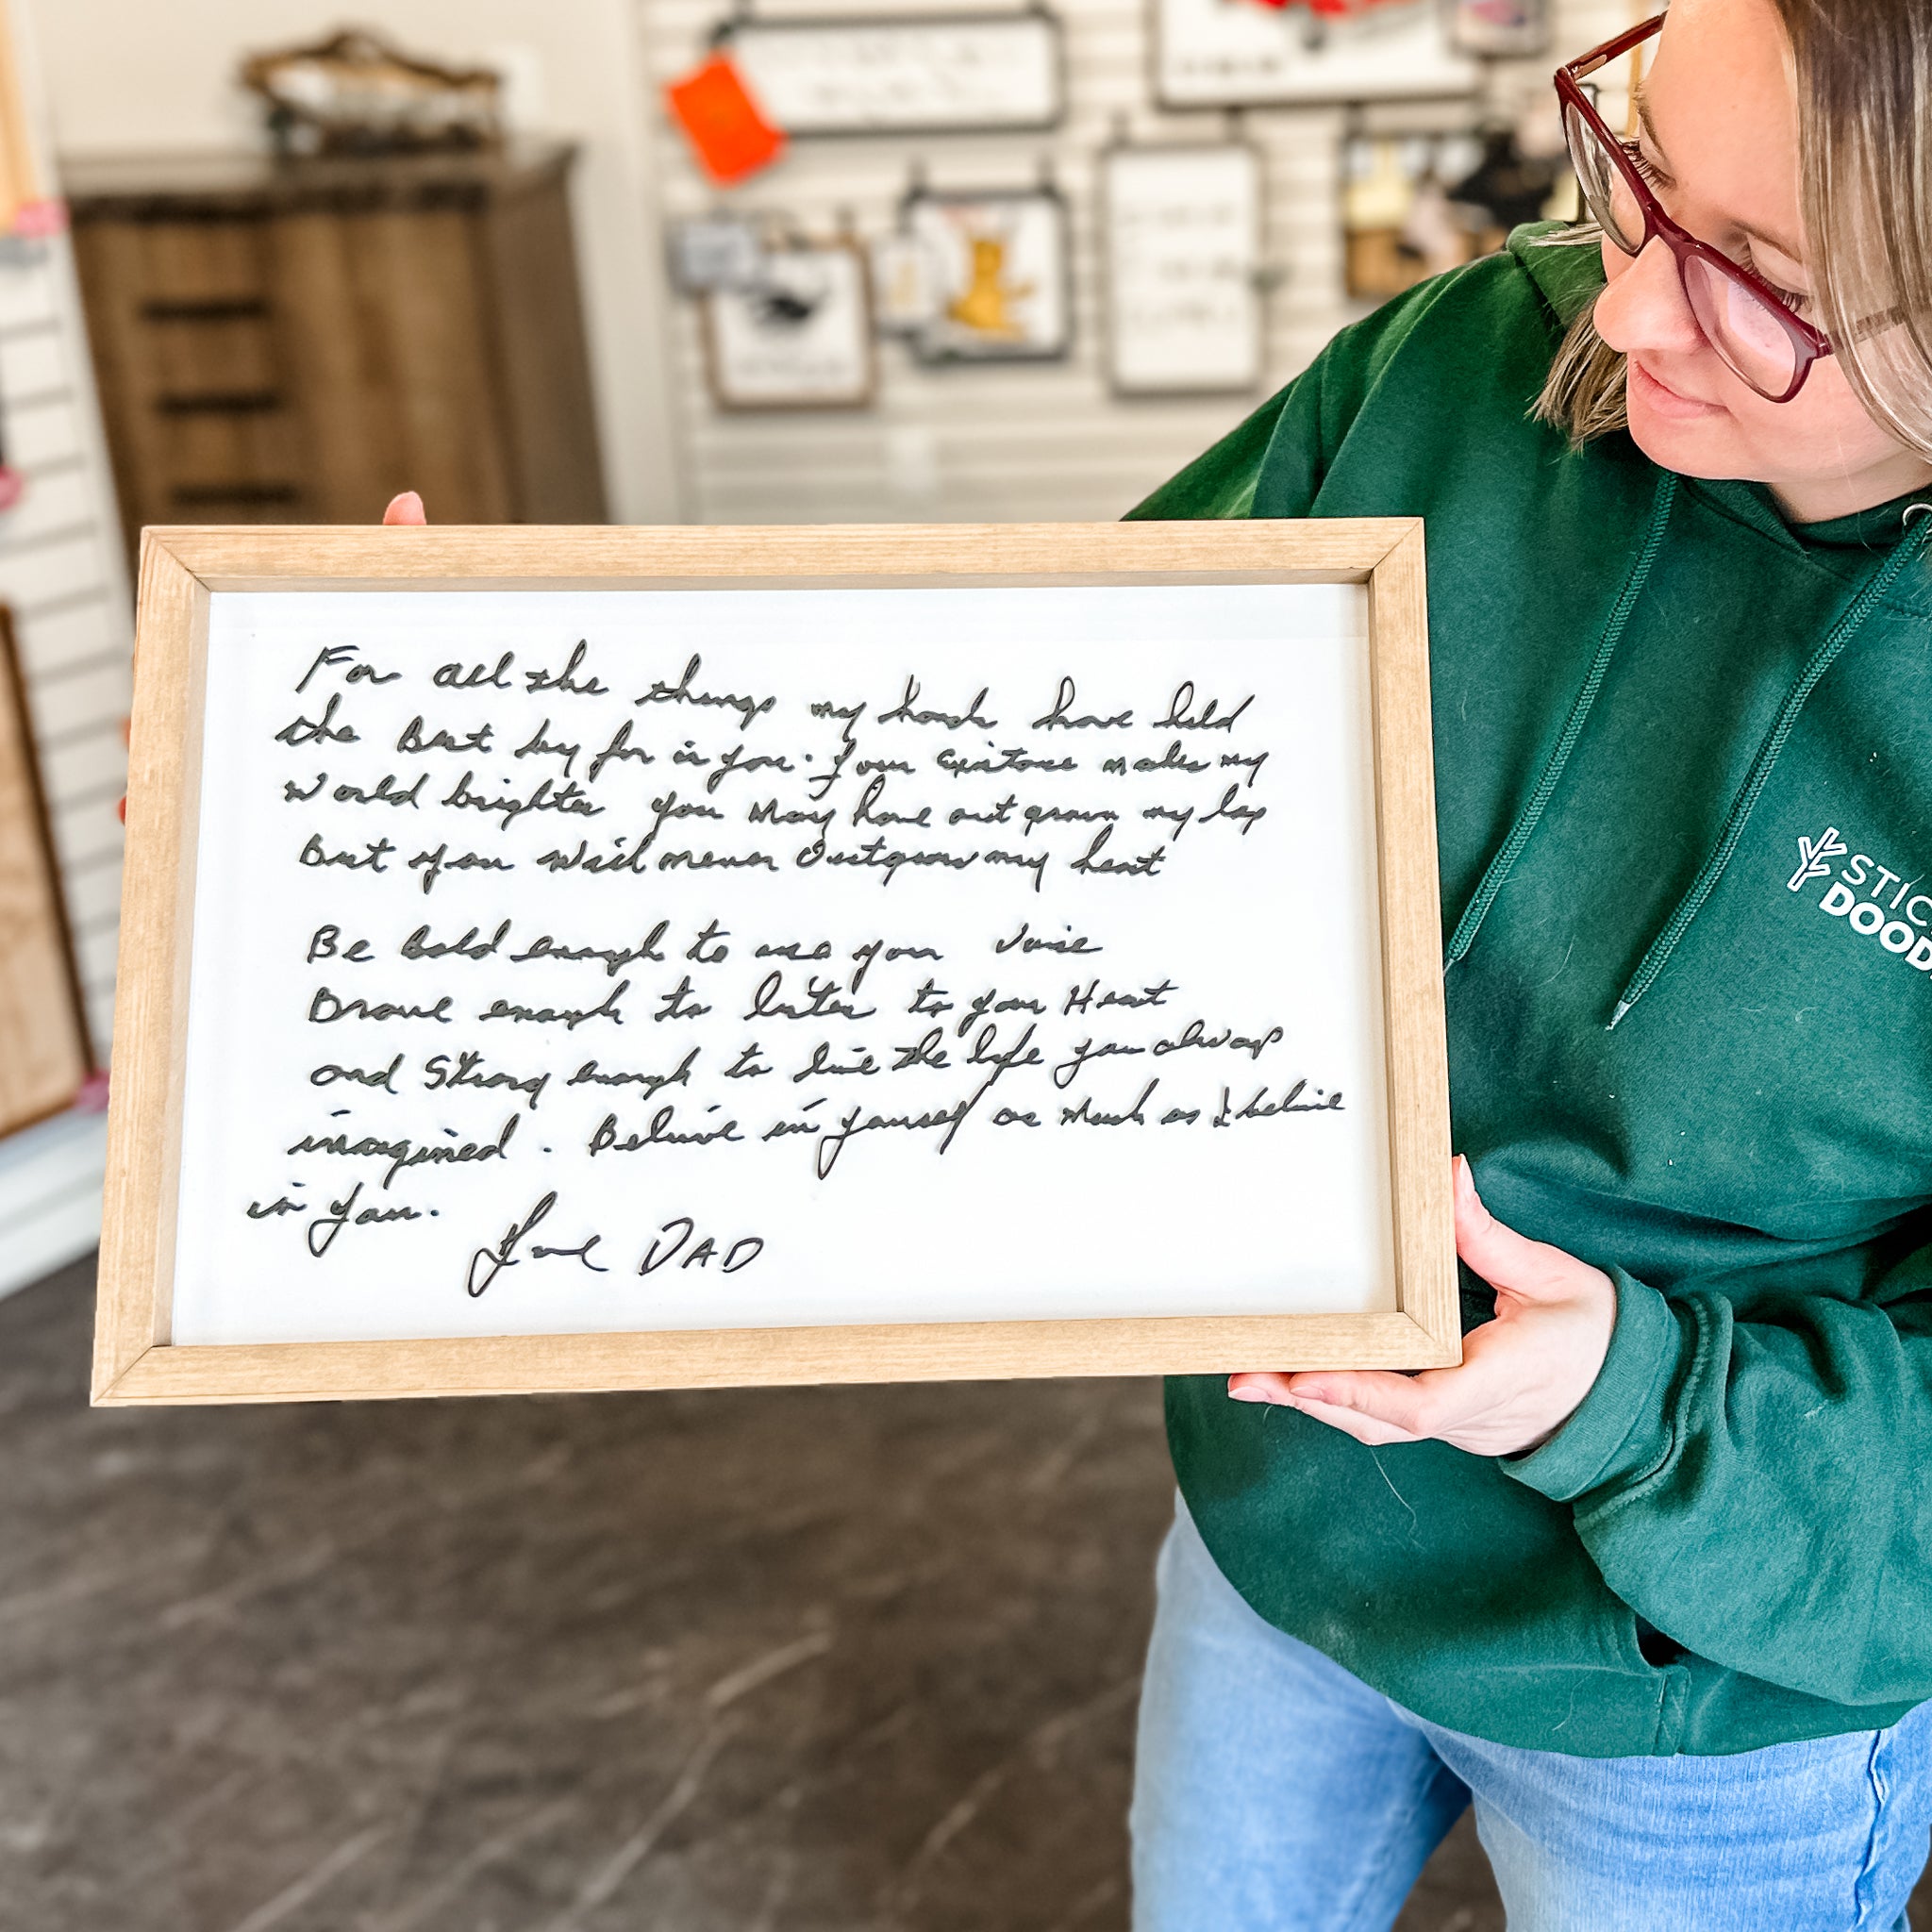 For all the things my hands have held
the Best by far is you. Your existance makes my
World brighter you May have out grown my lap
But you will never Outgrow my heart
Be bold enough to use your Voice
Brave enough to listen to your Heart
and Strong enough to live the life you always
imagined. Believe in yourself as Much as I believe
in you.
Love DAD
STIC
DOOD